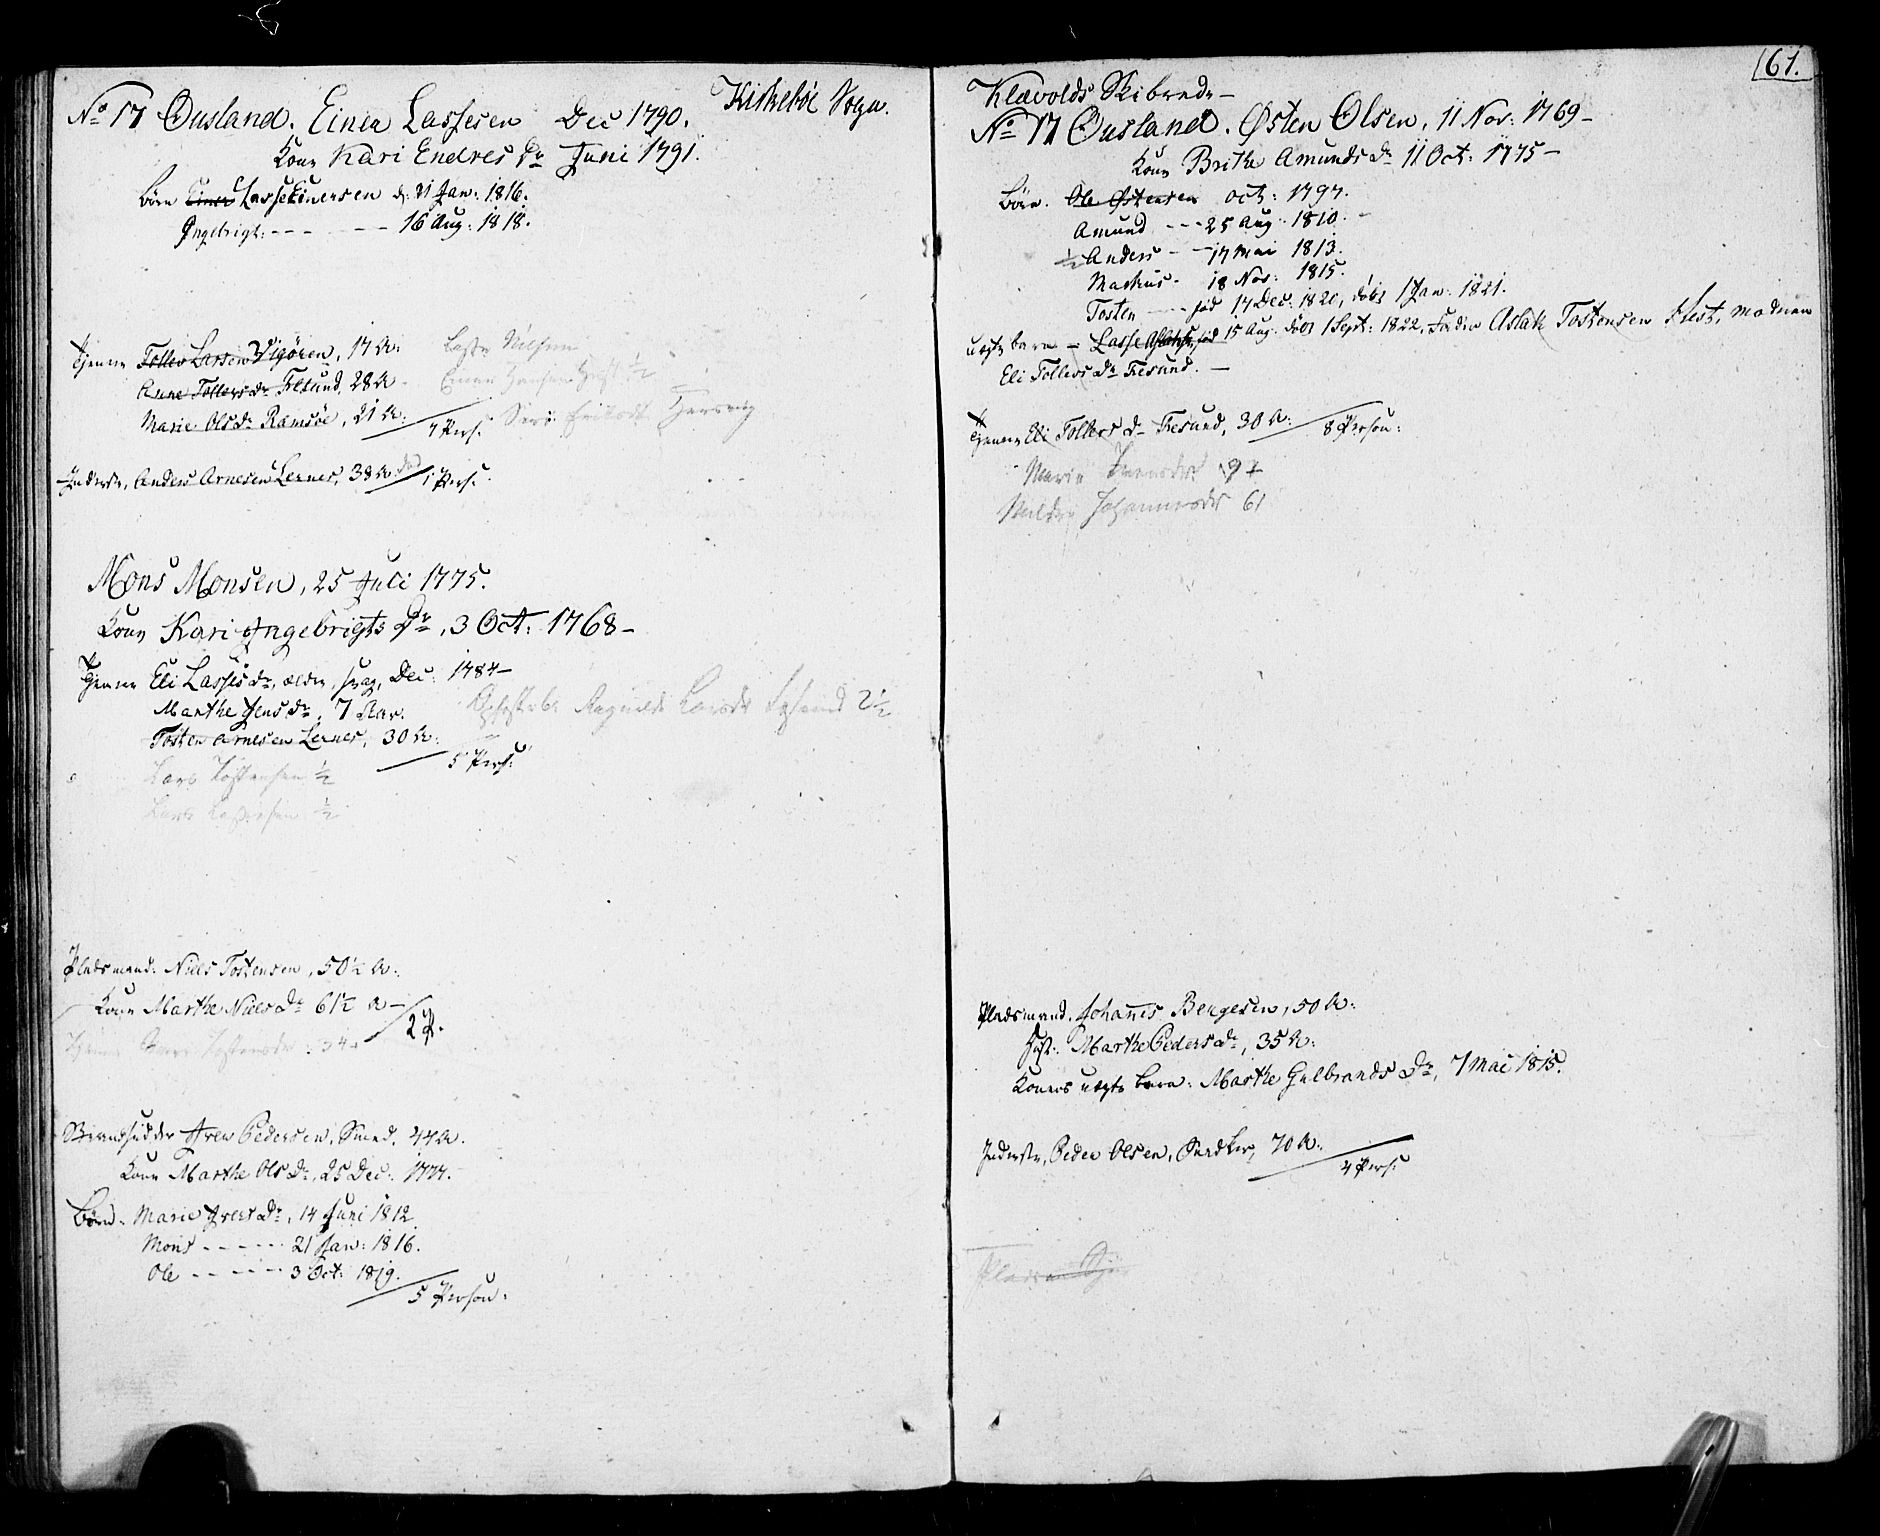 Kirkebøe Sogn.
No 17 Øusland. Einer Lassesen Dec 1790.
Kone Kari Endres Dr Juni 1791.
Børn Einer Lasse Einersen d: 21 Jan: 1816.
Ingebrigt: - - - - - - 16 Aug: 1818.
Tjenere Toller Larsen Vigøren, 17 A:
Lasse Nilsen
Anne Tollers Dr Tresund, 28 A -
Einer Hansen ½
Marie Ols Dr Ramsøe, 21 A: 7 Pers:
Inderste, Anders Arnesen Lerner, 38 A 1 Pers:
Mons Monsen, 25 Juli 1775.
Kone Kari Ingebrigts Dr, 3 Oct: 1768 -
Tjenere Eli Lasses Dr, ælder, svag, Dec: 1784 -
Marthe Jens Dr, 7 Aar.
Ragnilde Larsdr 2½
Tosten Arnesen Lerner, 30 A:
5 Pers:
Lars Tostensen ½
Lars ½
Pladsmand: Niels Tostensen, 50½ A:
Kone Marthe Niels Dr 61½ A -
2 P.
Tjener Tostensdr 34
Strandsidder Iver Pedersen, Smed, 44 A.
Kone Marthe Ols Dr, 25 Dec: 1777.
Børn: Marie Ivers Dr, 14 Juni 1812.
Mons - - - - - 21 Jan: 1816.
Ole - - - - - 3 Oct: 1819.
5 Person:
161.
Klævolds Skibrede -
No 17 Øusland. Østen Olsen, 11 Nov: 1769 -
Kone Brithe Amunds Dr 11 Oct: 1775 -
Børn. Ole Østensen oct: 1797.
Amund - - - 25 Aug: 1810. -
½ Anders - - 17 Mai 1813.
Markus - 18 Nov: 1815.
Tosten - - - fød 17 Dec: 1820, døbt 1 Jan: 1821.
uægte barn - Lasse Aslaksen fød 15 Aug. døbt 1 Sept: 1822, Fader Aslak Tostensen Hest, moderen
Eli Tollers Dr Tresund. -
Tjenere Eli Tollers Dr Tresund, 30 A: 8 Person:
Marie 97
Johannesdr 61
Pladsmand. Johanes Bergesen, 50 A:
Hust: Marthe Peders Dr, 35 A:
Konens uægte barn: Marthe Gulbrands Dr, 7 Mai 1815.
Inderste, Peder Olsen, Snedker, 70 A:
4 Pers: